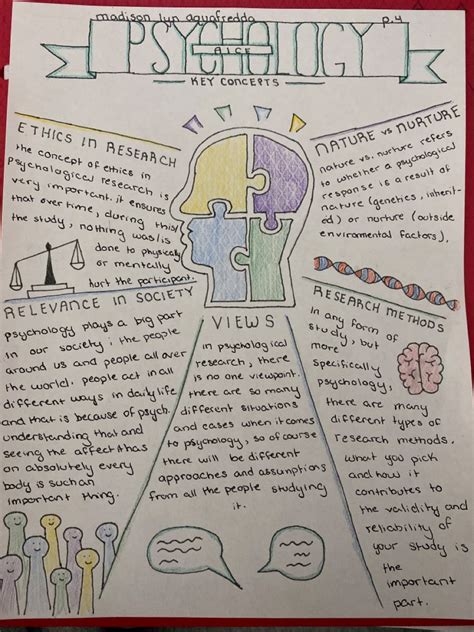 madison lyn aguafredda
p.4
PSYCHOLOGY
AICE
KEY CONCEPTS
ETHICS IN RESEARCH
the concept of ethics in
psychological research is
very important. it ensures
that over time, during this/
the study, nothing was/is
done to physically
or mentally
hurt the participant.
NATURE vs NURTURE
nature vs. nurture refers
to whether a psychological
response is a result of
nature (genetics, inherit-
ed) or nurture (outside
environmental factors).
RELEVANCE IN SOCIETY
psychology plays a big part
in our society; the people
around us and people all over
the world. people act in all
different ways in daily life
and that is because of psych.
understanding that and
seeing the affect it has
on absolutely every
body is such an
important thing.
VIEWS
in psychological
research, there
is no one viewpoint.
there are so many
different situations
and cases when it comes
to psychology, so of course
there will be different
approaches and assumptions
from all the people studying
it.
RESEARCH METHODS
in any form of
study, but
more
specifically
psychology,
there are many
different types of
research methods.
what you pick
and how it
contributes to
the validity and
reliability of
your study is
the
important
part.